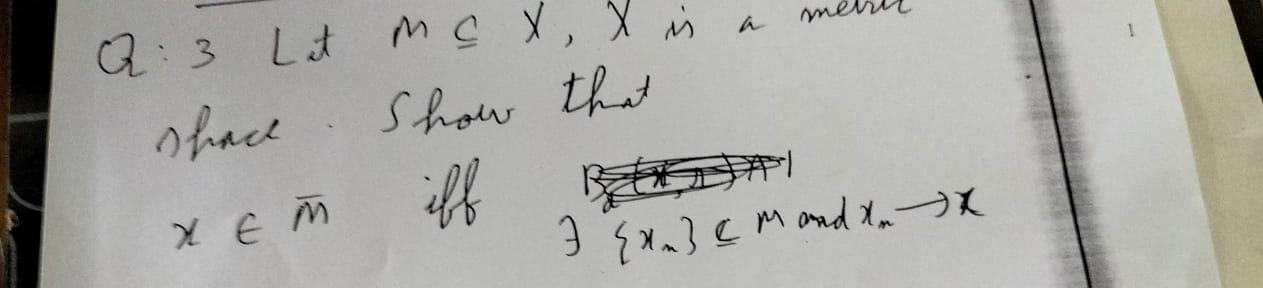 Q: 3 Let M ⊆ X, X is a metric
space. Show that
x ∈ M̄ iff
∃ {xₙ} ⊆ M and xₙ → x